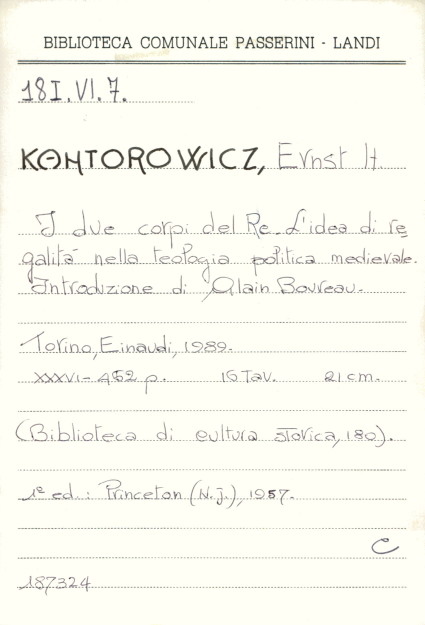 BIBLIOTECA COMUNALE PASSERINI - LANDI
18I.VI.7.
KANTOROWICZ, Ernst H.
I due corpi del Re. L'idea di re
galità nella teologia politica medievale.
Introduzione di Alain Boureau.
Torino, Einaudi, 1989.
XXXVI-452 p. 16 Tav. 21 cm.
(Biblioteca di cultura storica, 180).
1ª ed.: Princeton (N.J.), 1957.
C
187324